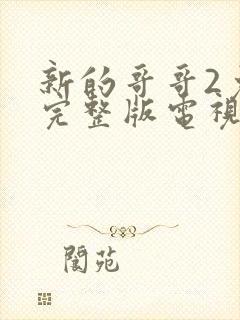 新的哥哥2
完整版電視
閬苑